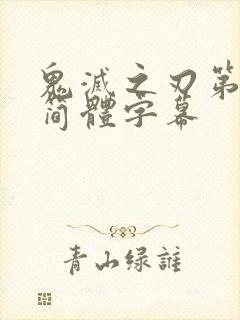 鬼滅之刃第
简體字幕
青山绿誰